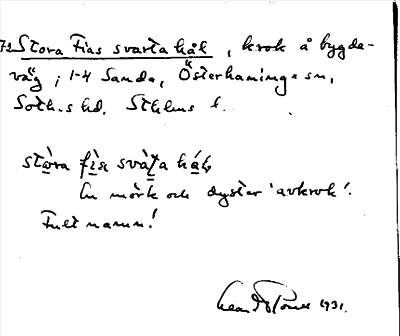 72 Stora Fias svarta hål, krok å bygde-
väg i 1-4 Sanda, Österhaninge sn,
Soth.s hd. Sthlms l.
stòra fìa svàṭa hál,
En mörk och dyster 'avkrok'.
Fult namn!
1931.